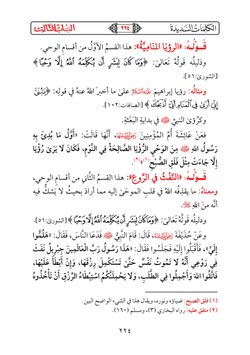 الكلمات السديدة
٢٢٤
قَولُهُ: «الرؤيا المنامية»: هذا القسم الأوّل من أقسام الوحي.
ودليلُه قولُه تَعَالَى: ﴿وَمَا كَانَ لِبَشَرٍ أَن يُكَلِّمَهُ اللَّهُ إِلَّا وَحْيًا﴾
[الشورى:٥١].
ومثالُه: رؤيا إبراهيمَ على ما أخبرَ اللهُ عنهُ في قولِه: ﴿يَٰبُنَيَّ
إِنِّي أَرَىٰ فِي الْمَنَامِ أَنِّي أَذْبَحُكَ﴾ [الصافات:١٠٢].
وكرؤى النبيِّ ﷺ في بدايةِ البَعثةِ.
فعنْ عائشةَ أمِّ المُؤْمِنينَ أنَّها قالتْ: «أَوَّلُ مَا بُدِئَ بِهِ
رَسُولُ اللهِ ﷺ مِنَ الوَحْيِ الرُّؤْيَا الصَّالِحَةُ فِي النَّوْمِ، فَكَانَ لَا يَرَى رُؤْيَا
إِلَّا جَاءَتْ مِثْلَ فَلَقِ الصُّبْحِ»(١)(٢).
قَولُهُ: «النَّفْثُ فِي الرُّوعِ»: هذا القسم الثَّاني من أقسامِ الوحيِ.
ومعناهُ: ما يَقذِفُه اللهُ في قلبِ الموحَى إليه مما أرادَ بحيثُ لا يَشكُّ فيه
أنَّه منَ اللهِ
ودليلُه قَولُهُ تَعَالَى: ﴿وَمَا كَانَ لِبَشَرٍ أَن يُكَلِّمَهُ اللَّهُ إِلَّا وَحْيًا﴾ [الشورى:٥١].
وعنْ حُذَيْفةَ قالَ: قَامَ النَّبِيُّ ﷺ فَدَعَا النَّاسَ، فَقَالَ: «هَلُمُّوا
إِلَيَّ»، فَأَقْبَلُوا إِلَيْهِ فَجَلَسُوا فَقَالَ: «هَذَا رَسُولُ رَبِّ العَالَمِينَ جِبْرِيلُ نَفَثَ
فِي رَوْعِي أَنَّهُ لَا تَمُوتُ نَفْسٌ حَتَّى تَسْتَكْمِلَ رِزْقَهَا، وَإِنْ أَبْطَأَ عَلَيْهَا،
فَاتَّقُوا اللهَ وَأَجْمِلُوا فِي الطَّلَبِ، وَلَا يَحْمِلَنَّكُمُ اسْتِبْطَاءُ الرِّزْقِ أَنْ تَأْخُذُوهُ
(١) فلق الصبح: ضياؤه ونوره، ويقال هذا في الشيء الواضح البين.
(٢) متفق عليه: رواه البخاري (٣)، ومسلم (١٦٠).
٢٢٤